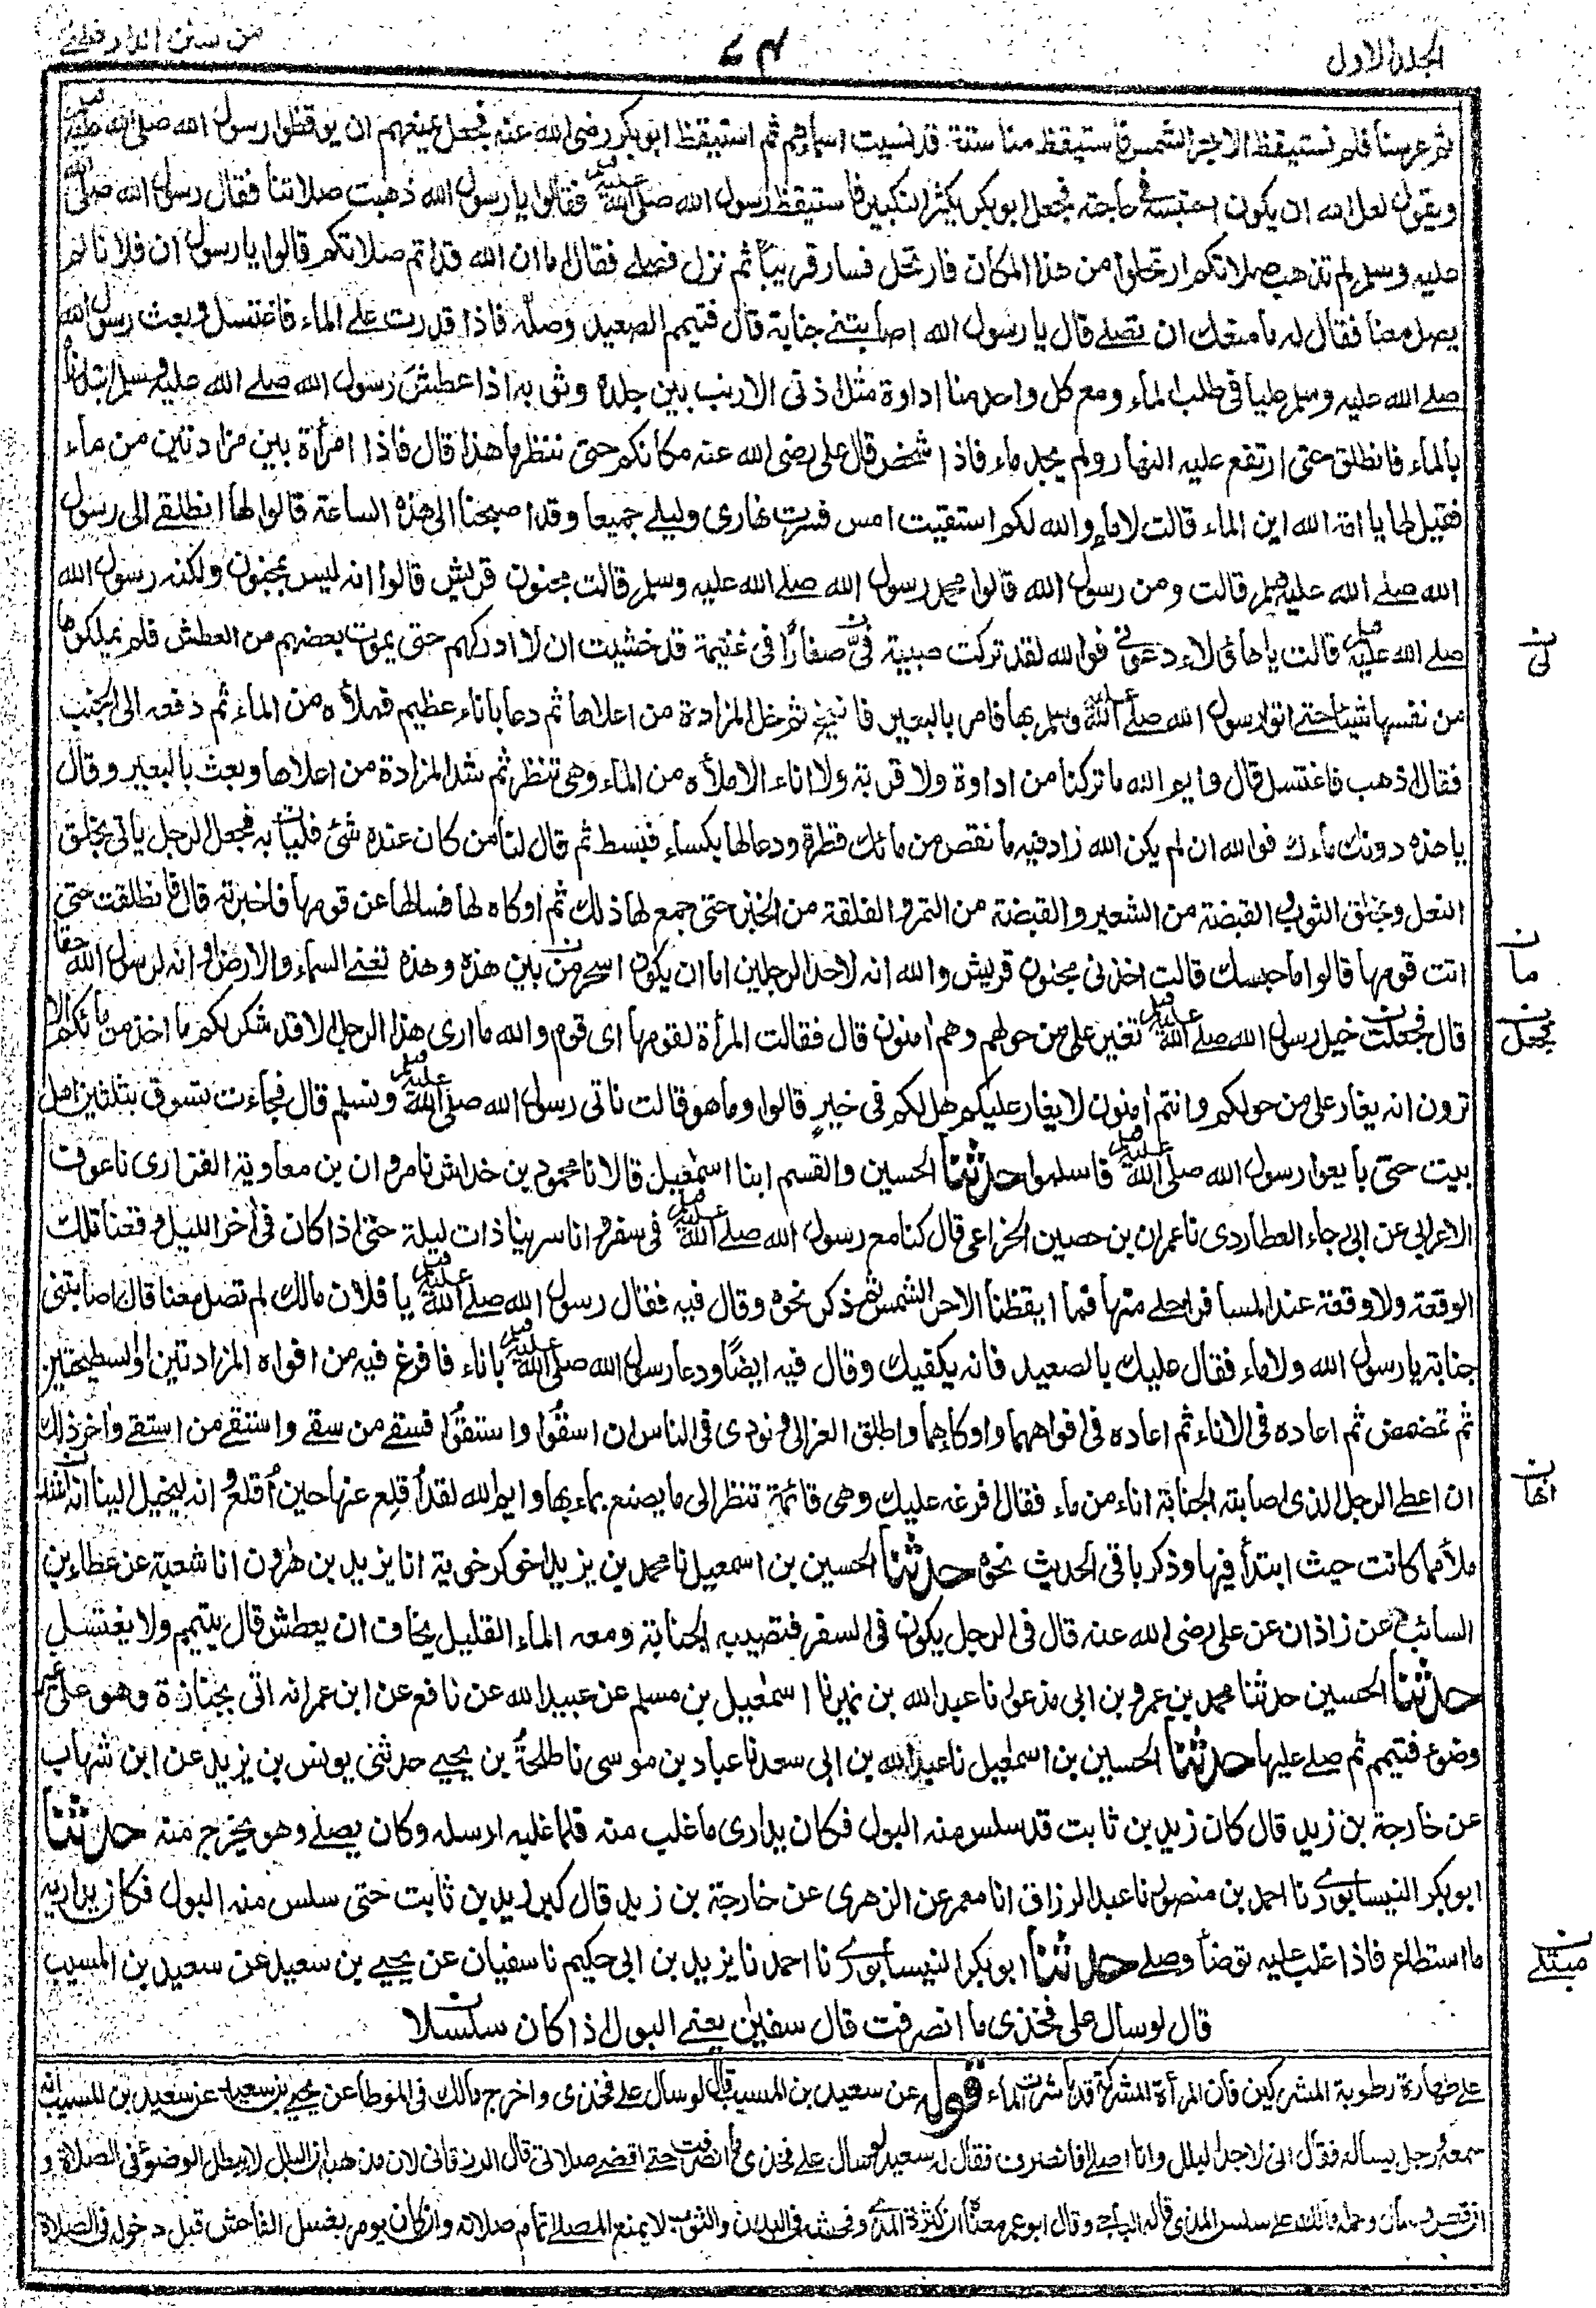 الجلد الاول
٧٤
من سنن الدار قطنے
ثم عرسنا فلم نستيقظ الا بحر الشمس فاستيقظ منا ستة قد نسيت اسماءهم ثم استيقظ ابو بكر رضی الله عنه فجعل يمنعهم ان يوقظوا رسول الله صلی الله عليه
ويقول لعل الله ان يكون احتبسه فی حاجته فجعل ابو بكر يكثر التكبير فاستيقظ رسول الله صلی الله عليه فقالوا يا رسول الله ذهبت صلاتنا فقال رسول الله صلی الله
عليه وسلم لم تذهب صلاتكم ارتحلوا من هذا المكان فارتحل فسار قريبا ثم نزل فصلے فقال اما ان الله قد اتم صلاتكم قالوا يا رسول ان فلانا لم
يصل معنا فقال له ما منعك ان تصلے قال يا رسول الله اصابتنے جنابة قال فتيمم الصعيد وصله فاذا قدرت علے الماء فاغتسل وبعث رسول الله
صلے الله عليه وسلم عليا فی طلب الماء ومع كل واحد منا اداوة مثل اذنی الارنب بين جلده وثوبه اذا عطش رسول الله صلے الله عليه وسلم ابتدرناه
بالماء فانطلق حتی ارتفع عليه النهار ولم يجد ماء فاذا شخص قال علی رضی الله عنه مكانكم حتی ننظر ما هذا قال فاذا امرأة بين مزادتين من ماء
فقيل لها يا امة الله اين الماء قالت لا ماء والله لكم استقيت امس فسرت نهاری وليلے جميعا وقد اصبحنا الی هذه الساعة قالوا لها انطلقے الی رسول
الله صلے الله عليه وسلم قالت ومن رسول الله قالوا محمد رسول الله صلے الله عليه وسلم قالت مجنون قريش قالوا انه ليس بمجنون ولكنه رسول الله
صلے الله عليه قالت يا هاؤلاء دعونی فوالله لقد تركت صبية فیّ صغارا فی غنيمة قد خشيت ان لا ادركهم حتی يموت بعضهم من العطش فلم يملكوها
لی
من نفسها شيئا حتے اتوا رسول الله صلے الله عليه وسلم بها فامر بالبعير فانيخ ثم حل المزادة من اعلاها ثم دعا باناء عظيم فملأه من الماء ثم دفعه الی الجنب
فقال اذهب فاغتسل قال وايم الله ما تركنا من اداوة ولا قربة ولا اناء الا ملأه من الماء وهی تنظر ثم شد المزادة من اعلاها وبعث بالبعير وقال
يا هذه دونك ماءك فوالله ان لم يكن الله زاد فيه ما نقص من مائك قطرة ودعا لها بكساء فبسط ثم قال لنا من كان عنده شئ فليأت به فجعل الرجل ياتی بخلق
النعل وخلق الثوب والقبضة من الشعير والقبضة من التمر والفلقة من الخبز حتی جمع لها ذلك ثم اوكاه لها فسالها عن قومها فاخبرته قال فانطلقت حتی
اتت قومها قالوا ما حبسك قالت اخذنی مجنون قريش والله انه لاحد الرجلين اما ان يكون اسحر من بين هذه وهذه تعنے السماء والارض او انه لرسول الله حقا
ما
قال فجعلت خيل رسول الله صلے الله عليه تغير علی من حولهم وهم امنون قال فقالت المرأة لقومها ای قوم والله ما اری هذا الرجل الا قد شكر لكم ما اخذ من مائكم الا
تجعل
ترون انه يغار علی من حولكم وانتم امنون لا يغار عليكم هل لكم فی خير قالوا وما هو قالت ناتی رسول الله صلی الله عليه ونسلم قال فجاءت تسوق بثلثين اهل
بيت حتی بايعوا رسول الله صلی الله عليه فاسلموا حدثنا الحسين والقسم ابنا اسمٰعيل قالا نا محمود بن خداش نا مروان بن معاوية الفزاری نا عوف
الاعرابی عن ابی رجاء العطاردی نا عمران بن حصين الخزاعی قال كنا مع رسول الله صلے الله عليه فی سفر وانا سرينا ذات ليلة حتی اذا كان فی اخر الليل وقعنا تلك
الوقعة ولا وقعة عند المسافر احلے منها فما ايقظنا الا حر الشمس ثم ذكر نحوه وقال فيه فقال رسول الله صلے الله عليه يا فلان مالك لم تصل معنا قال اصابتنی
جنابة يا رسول الله ولا ماء فقال عليك بالصعيد فانه يكفيك وقال فيه ايضا ودعا رسول الله صلی الله عليه باناء فافرغ فيه من افواه المزادتين او السطيحتين
ثم تمضمض ثم اعاده فی الاناء ثم اعاده فی افواههما واوكاهما واطلق العزالی ونودی فی الناس ان اسقوا واستقوا فسقے من سقے واستقے من استقے واخر ذلك
ان اعطے الرجل الذی اصابته الجنابة اناء من ماء فقال افرغه عليك وهی قائمة تنظر الی ما يصنع بماءها وايم الله لقد اقلع عنها حين اقلع وانه ليخيل الينا انه اشد
انها
ملأ مما كانت حيث ابتدأ فيها وذكر باقی الحديث نحوه حدثنا الحسين بن اسمعيل نا محمد بن يزيد اخو كرخوية انا يزيد بن هرون انا شعبة عن عطاء بن
السائب عن زاذان عن علی رضی الله عنه قال فی الرجل يكون فی السفر فتصيبه الجنابة ومعه الماء القليل يخاف ان يعطش قال يتيمم ولا يغتسل
حدثنا الحسين حدثنا محمد بن عمرو بن ابی مذعور نا عبد الله بن نمير نا اسمٰعيل بن مسلم عن عبيد الله عن نافع عن ابن عمر انه اتی بجنازة وهو علی غير
وضوء فتيمم ثم صلے عليها حدثنا الحسين بن اسمٰعيل نا عبد الله بن ابی سعد نا عباد بن موسی نا طلحة بن يحيے حدثنی يونس بن يزيد عن ابن شهاب
عن خارجة بن زيد قال كان زيد بن ثابت قد سلس منه البول فكان يداری ما غلب منه فلما غلبه ارسله وكان يصلے وهو يخرج منه حدثنا
ابو بكر النيسابوری نا احمد بن منصور نا عبد الرزاق انا معمر عن الزهری عن خارجة بن زيد قال كبر زيد بن ثابت حتی سلس منه البول فكان يداريه
ما استطاع فاذا غلب عليه توضأ وصلے حدثنا ابو بكر النيسابوری نا احمد نا يزيد بن ابی حكيم نا سفيان عن يحيے بن سعيد عن سعيد بن المسيب
مبتلے
قال لو سال علی فخذی ما انصرفت قال سفيٰن يعنے البول اذا كان سلسلا
علے طهارة رطوبة المشركين فان المرأة المشركة قد باشرت الماء قوله عن سعيد بن المسيب قال لو سال علے فخذی واخرج مالك فی الموطا عن يحيے بن سعيد عن سعيد بن المسيب انه
سمعه ورجل يساله فقال انی لاجد البلل وانا اصلے افانصرف فقال له سعيد لو سال علے فخذی ما انصرفت حتے اقضے صلاتی قال الزرقانی لان مذهبه ان البلل لا يبطل الوضوء فی الصلاة و
وحمله مالك علے سلس المذی قاله الباجے وقال ابو عمر معناه ان كثرة المذی وفحشه فی البدن والثوب لا يمنع المصلے تمام صلاته وان كان يومر بغسل الفاحش قبل دخوله فی الصلاة